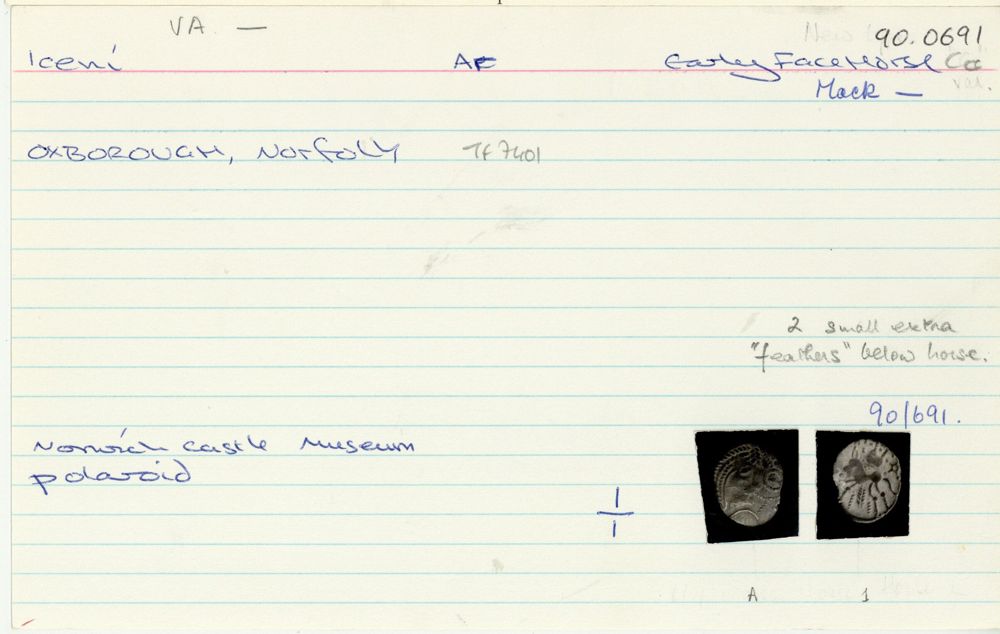 VA — 90.0691
Iceni AR Early Face Horse
Mack —
OXBOROUGH, Norfolk TF 7401
2 small extra
"feathers" below horse.
90/691.
Norwich Castle Museum
polaroid
1
1
A 1